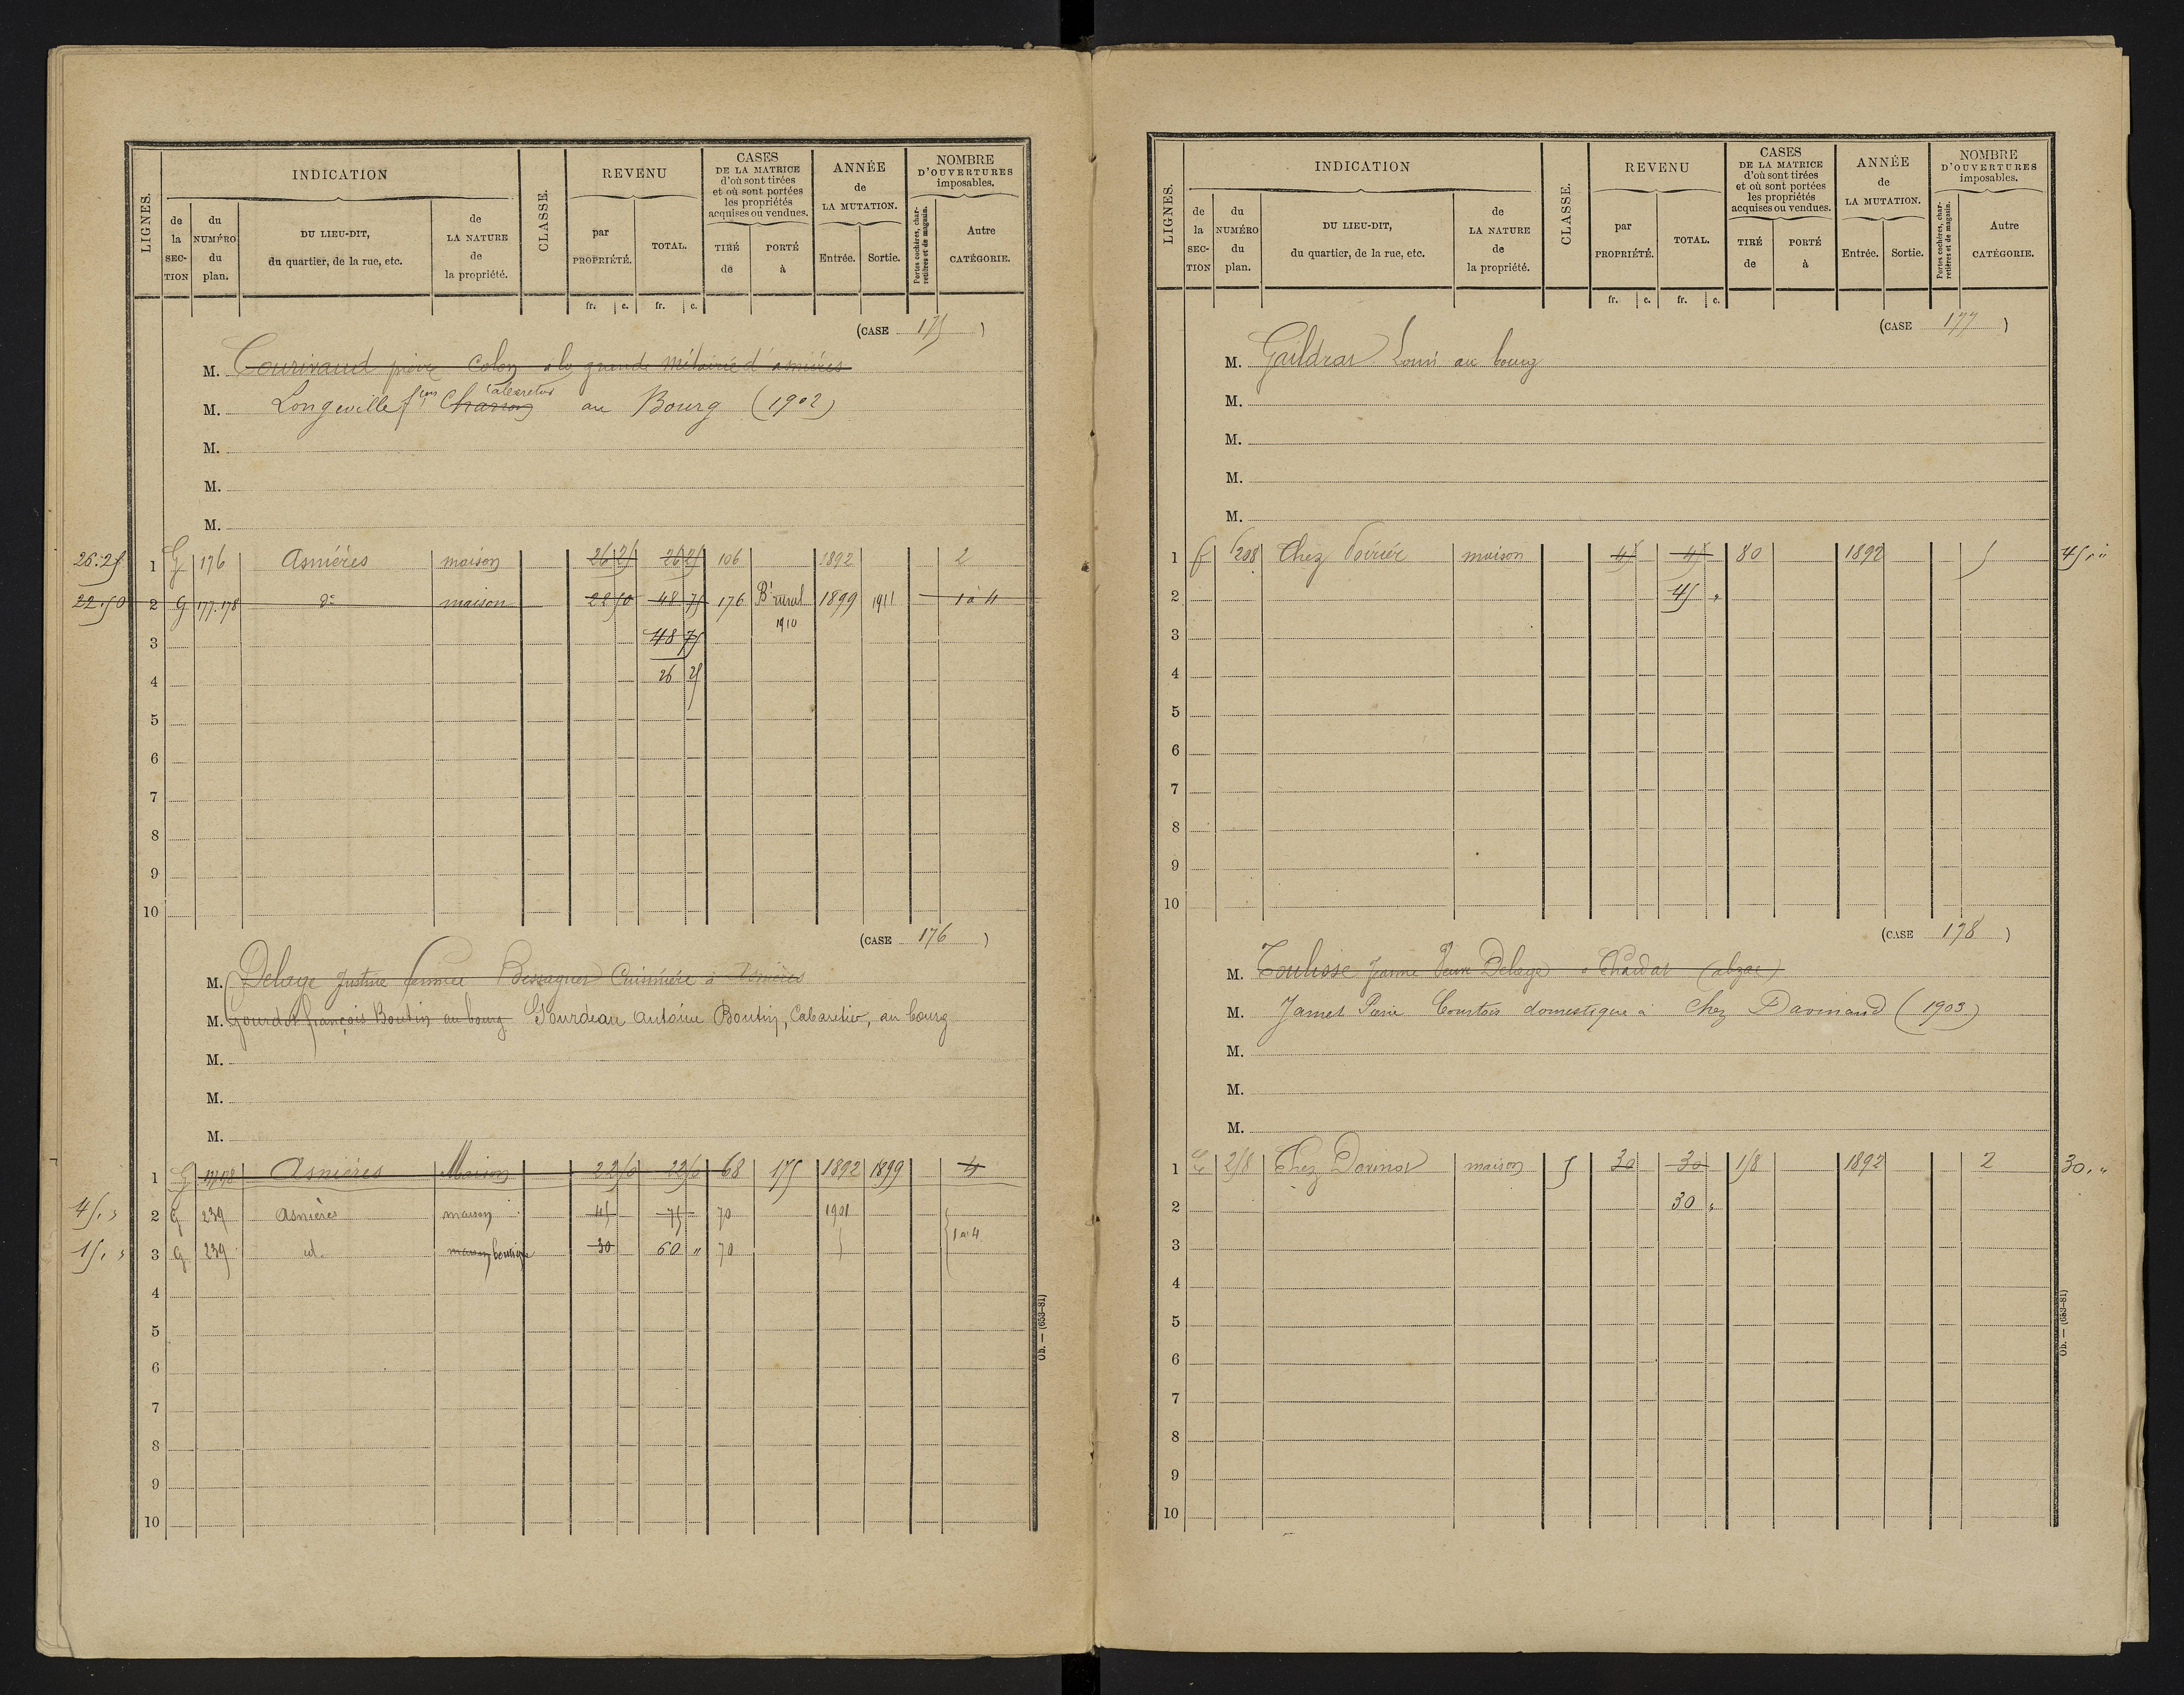 LIGNES.
INDICATION
de la SECTION
du NUMÉRO du plan.
DU LIEU-DIT, du quartier, de la rue, etc.
de LA NATURE de la propriété.
CLASSE.
REVENU
par PROPRIÉTÉ.
TOTAL.
CASES DE LA MATRICE d'où sont tirées et où sont portées les propriétés acquises ou vendues.
TIRÉ de
PORTÉ à
ANNÉE de LA MUTATION.
Entrée.
Sortie.
NOMBRE D'OUVERTURES imposables.
Portes cochères, charretières et de magasin.
Autre CATÉGORIE.
fr. c. fr. c.
(CASE 175)
M. Courivaud pierre Colon à la grande Métairie d'asnières
M. Longeville fcois Charron Cabaretier au Bourg (1902)
M.
M.
M.
26.25 1 G 176 Asnières maison 26 25 26 25 106 1892 2
22.50 2 G 177.178 do maison 22 50 48 75 176 Bt rural 1910 1899 1911 1 à 4
3 48 75
4 26 25
5
6
7
8
9
10
(CASE 176)
M. Delage Justine femme Cuisinière à Asnières
M. Gourd François Boutin au bourg Gourdeau Antoine Boutin, Cabaretier, au bourg
M.
M.
M.
1 G 177.178 Asnières Maison 22 50 22 50 68 175 1892 1899 4
45. " 2 G 239 Asnières maison 45 75 70 1901
15. " 3 G 239 id. maison boutique 30 60 " 70 1 à 4
4
5
6
7
8
9
10
Ob. — (653-81)
LIGNES.
INDICATION
de la SECTION
du NUMÉRO du plan.
DU LIEU-DIT, du quartier, de la rue, etc.
de LA NATURE de la propriété.
CLASSE.
REVENU
par PROPRIÉTÉ.
TOTAL.
CASES DE LA MATRICE d'où sont tirées et où sont portées les propriétés acquises ou vendues.
TIRÉ de
PORTÉ à
ANNÉE de LA MUTATION.
Entrée.
Sortie.
NOMBRE D'OUVERTURES imposables.
Portes cochères, charretières et de magasin.
Autre CATÉGORIE.
fr. c. fr. c.
(CASE 177)
M. Gaildrar Louis au bourg
M.
M.
M.
M.
1 1208 Chez Poirier maison 45 45 80 1892 5 45. "
2 45 "
3
4
5
6
7
8
9
10
(CASE 178)
M. Toulisse Jeanne Veuve Delage à Chardat (abzac)
M. Jamet Pierre Courtois domestique à Chez Davinaud (1903)
M.
M.
M.
1 258 Chez maison 5 30 30 158 1892 2 30. "
2 30 "
3
4
5
6
7
8
9
10
Ob. — (653-81)